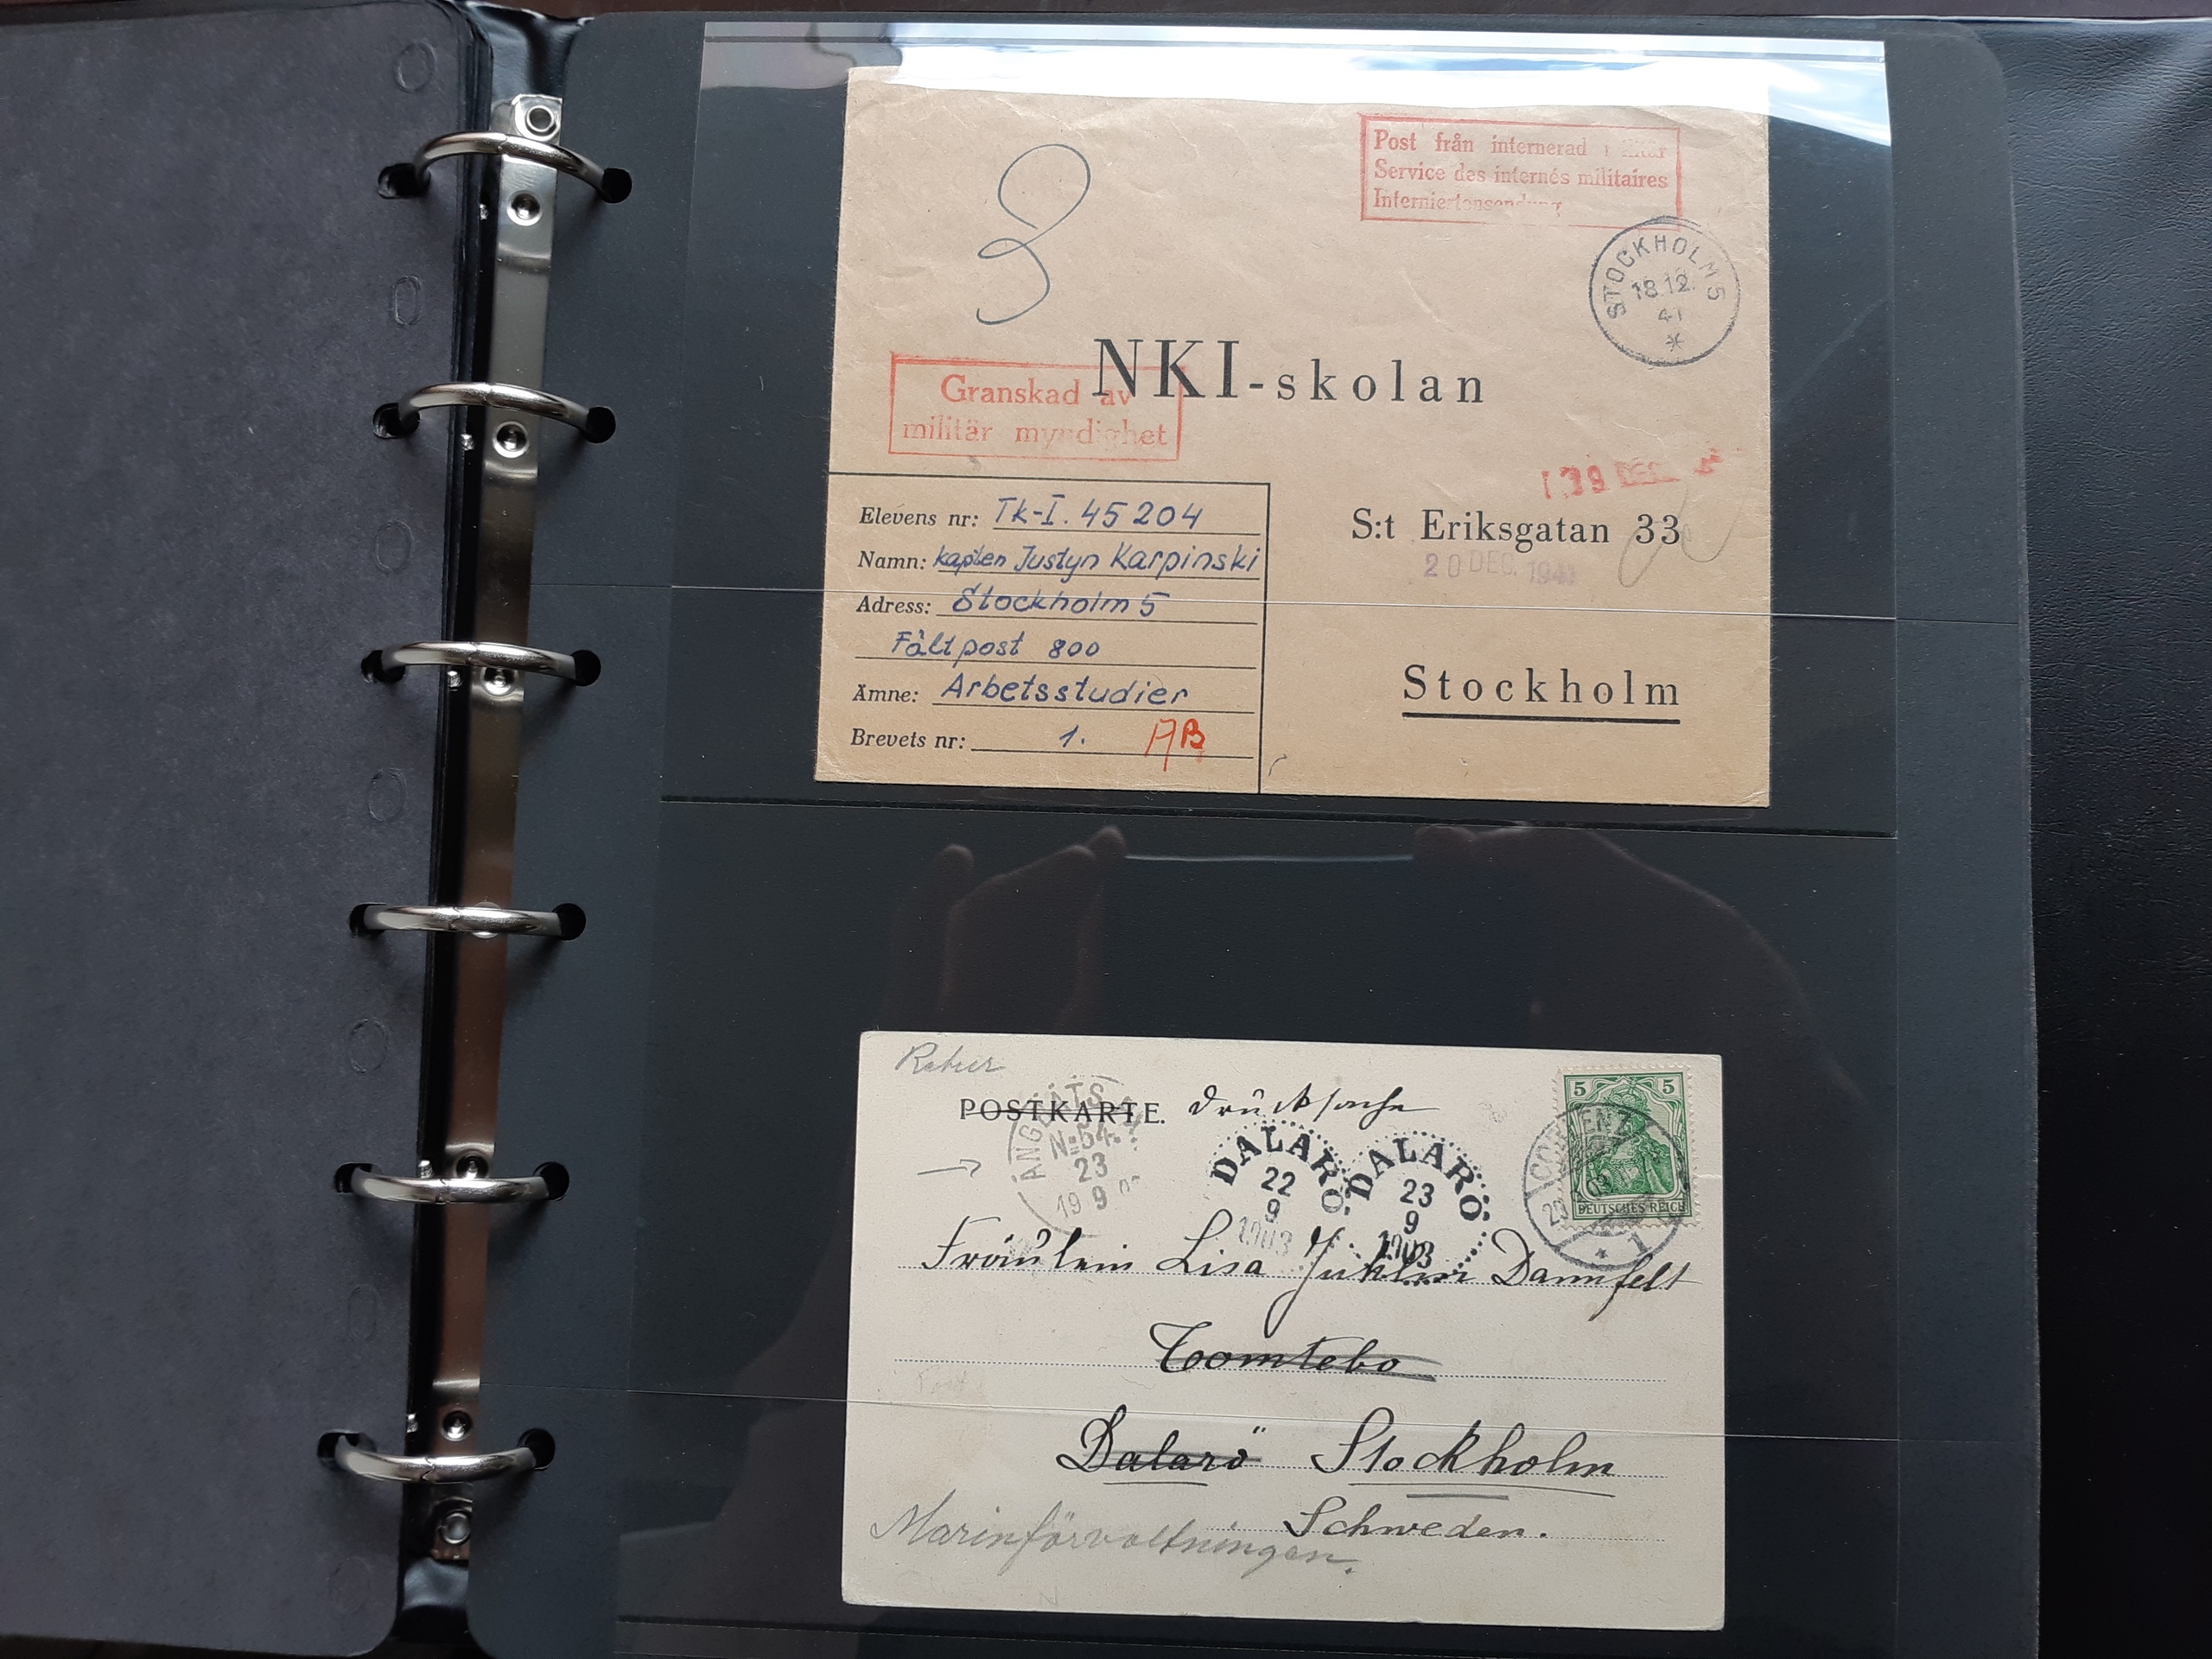 Post från internerad
Service des internés militaires
Interniertensendung
STOCKHOLM 5
18.12.
41
*
3
NKI-skolan
Granskad av
militär myndighet
19 DEC.
Elevens nr: Tk-I. 45204
Namn: kapten Justyn Karpinski
Adress: Stockholm 5
Fältpost 800
Ämne: Arbetsstudier
Brevets nr: 1. AB
S:t Eriksgatan 33
20 DEC. 1941
Stockholm
Retur
POSTKARTE. Drucksache
ÅNGBÅTS
No 54.
23
19 9
DALARÖ
22
9
1903
DALARÖ
23
9
1903
5 5
DEUTSCHES REICH
COBLENZ
* 1
Fräulein Lisa Dannfelt
Tomtebo
Dalarö Stockholm
Schweden.
Marinförvaltningen.